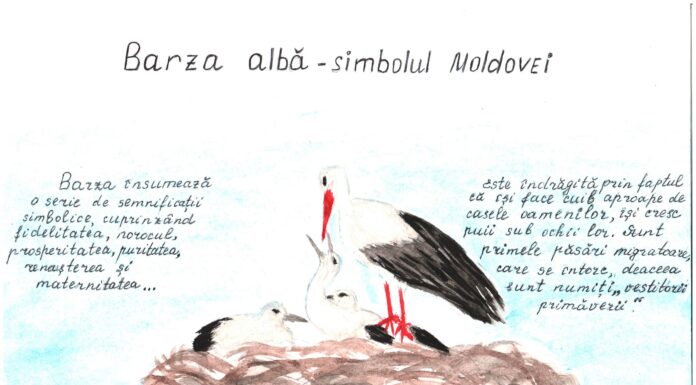 Barza albă - simbolul Moldovei
Barza însumează
o serie de semnificații
simbolice, cuprinzând
fidelitatea, norocul,
prosperitatea, puritatea,
renașterea și
maternitatea...
Este îndrăgită prin faptul
că își face cuib aproape de
casele oamenilor, își cresc
puii sub ochii lor. Sunt
primele păsări migratoare,
care se întorc, deaceea
sunt numiți „vestitorii
primăverii".